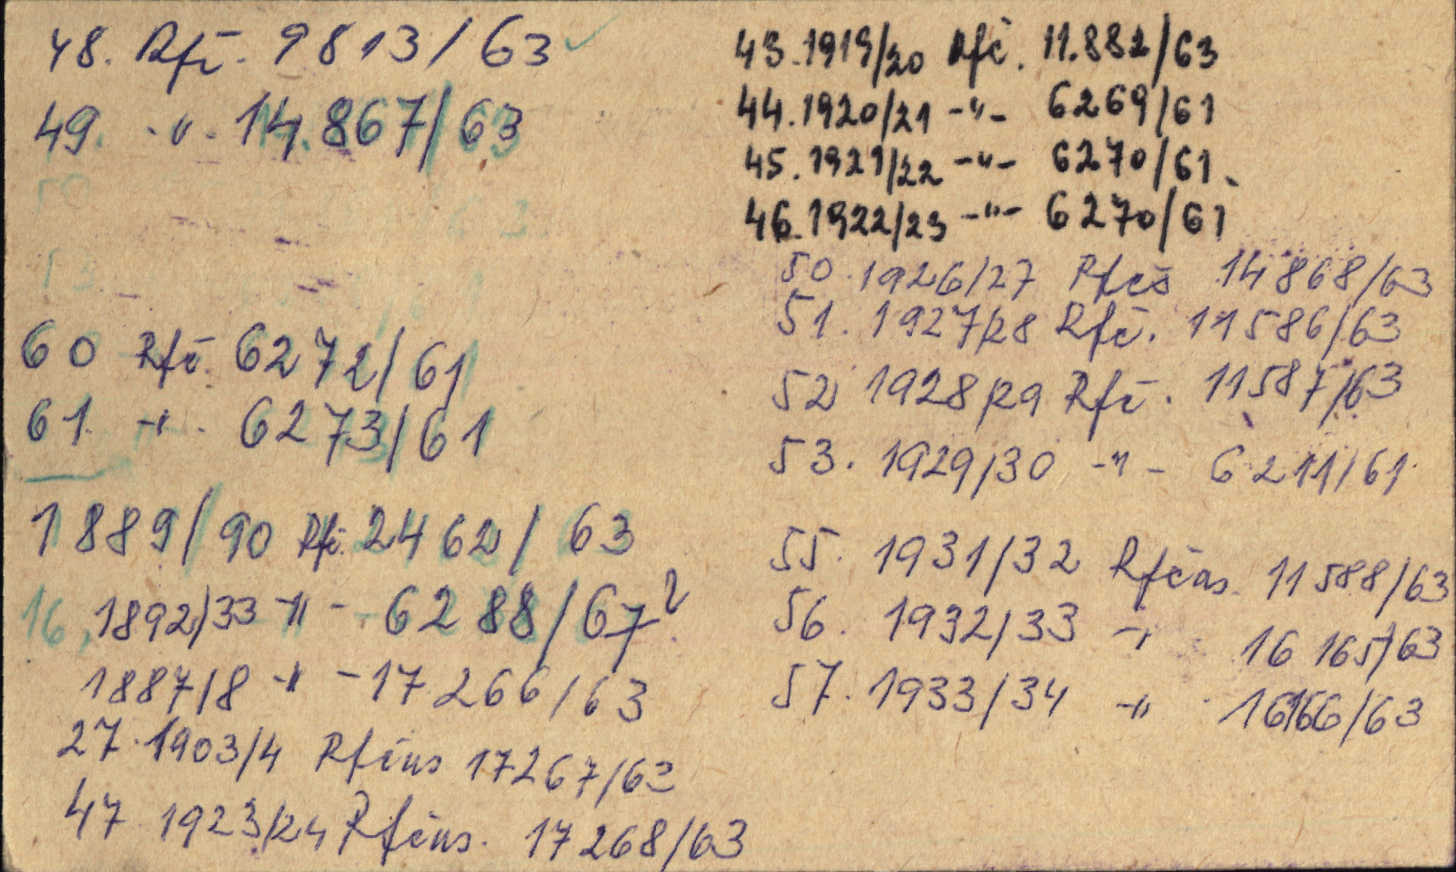 48. Rfč. 9813/63
49. -"- 14.867/63
60 Rfč. 6272/61
61. -"- 6273/61
1889/90 Rfč. 2462/63
16. 1892/33 -"- 6288/67?
1887/8 -"- 17.266/63
27. 1903/4 Rfčus 17267/63
47. 1923/24 Rfčus. 17268/63
43. 1919/20 Rfč. 11.882/63
44. 1920/21 -"- 6269/61
45. 1921/22 -"- 6270/61.
46. 1922/23 -"- 6270/61
50. 1926/27 14868/63
51. 1927/28 Rfč. 11586/63
52 1928/29 Rfč. 11587/63
53. 1929/30 -"- 6211/61.
55. 1931/32 Rfčus. 11588/63
56. 1932/33 -"- 16165/63
57. 1933/34 -"- 16166/63